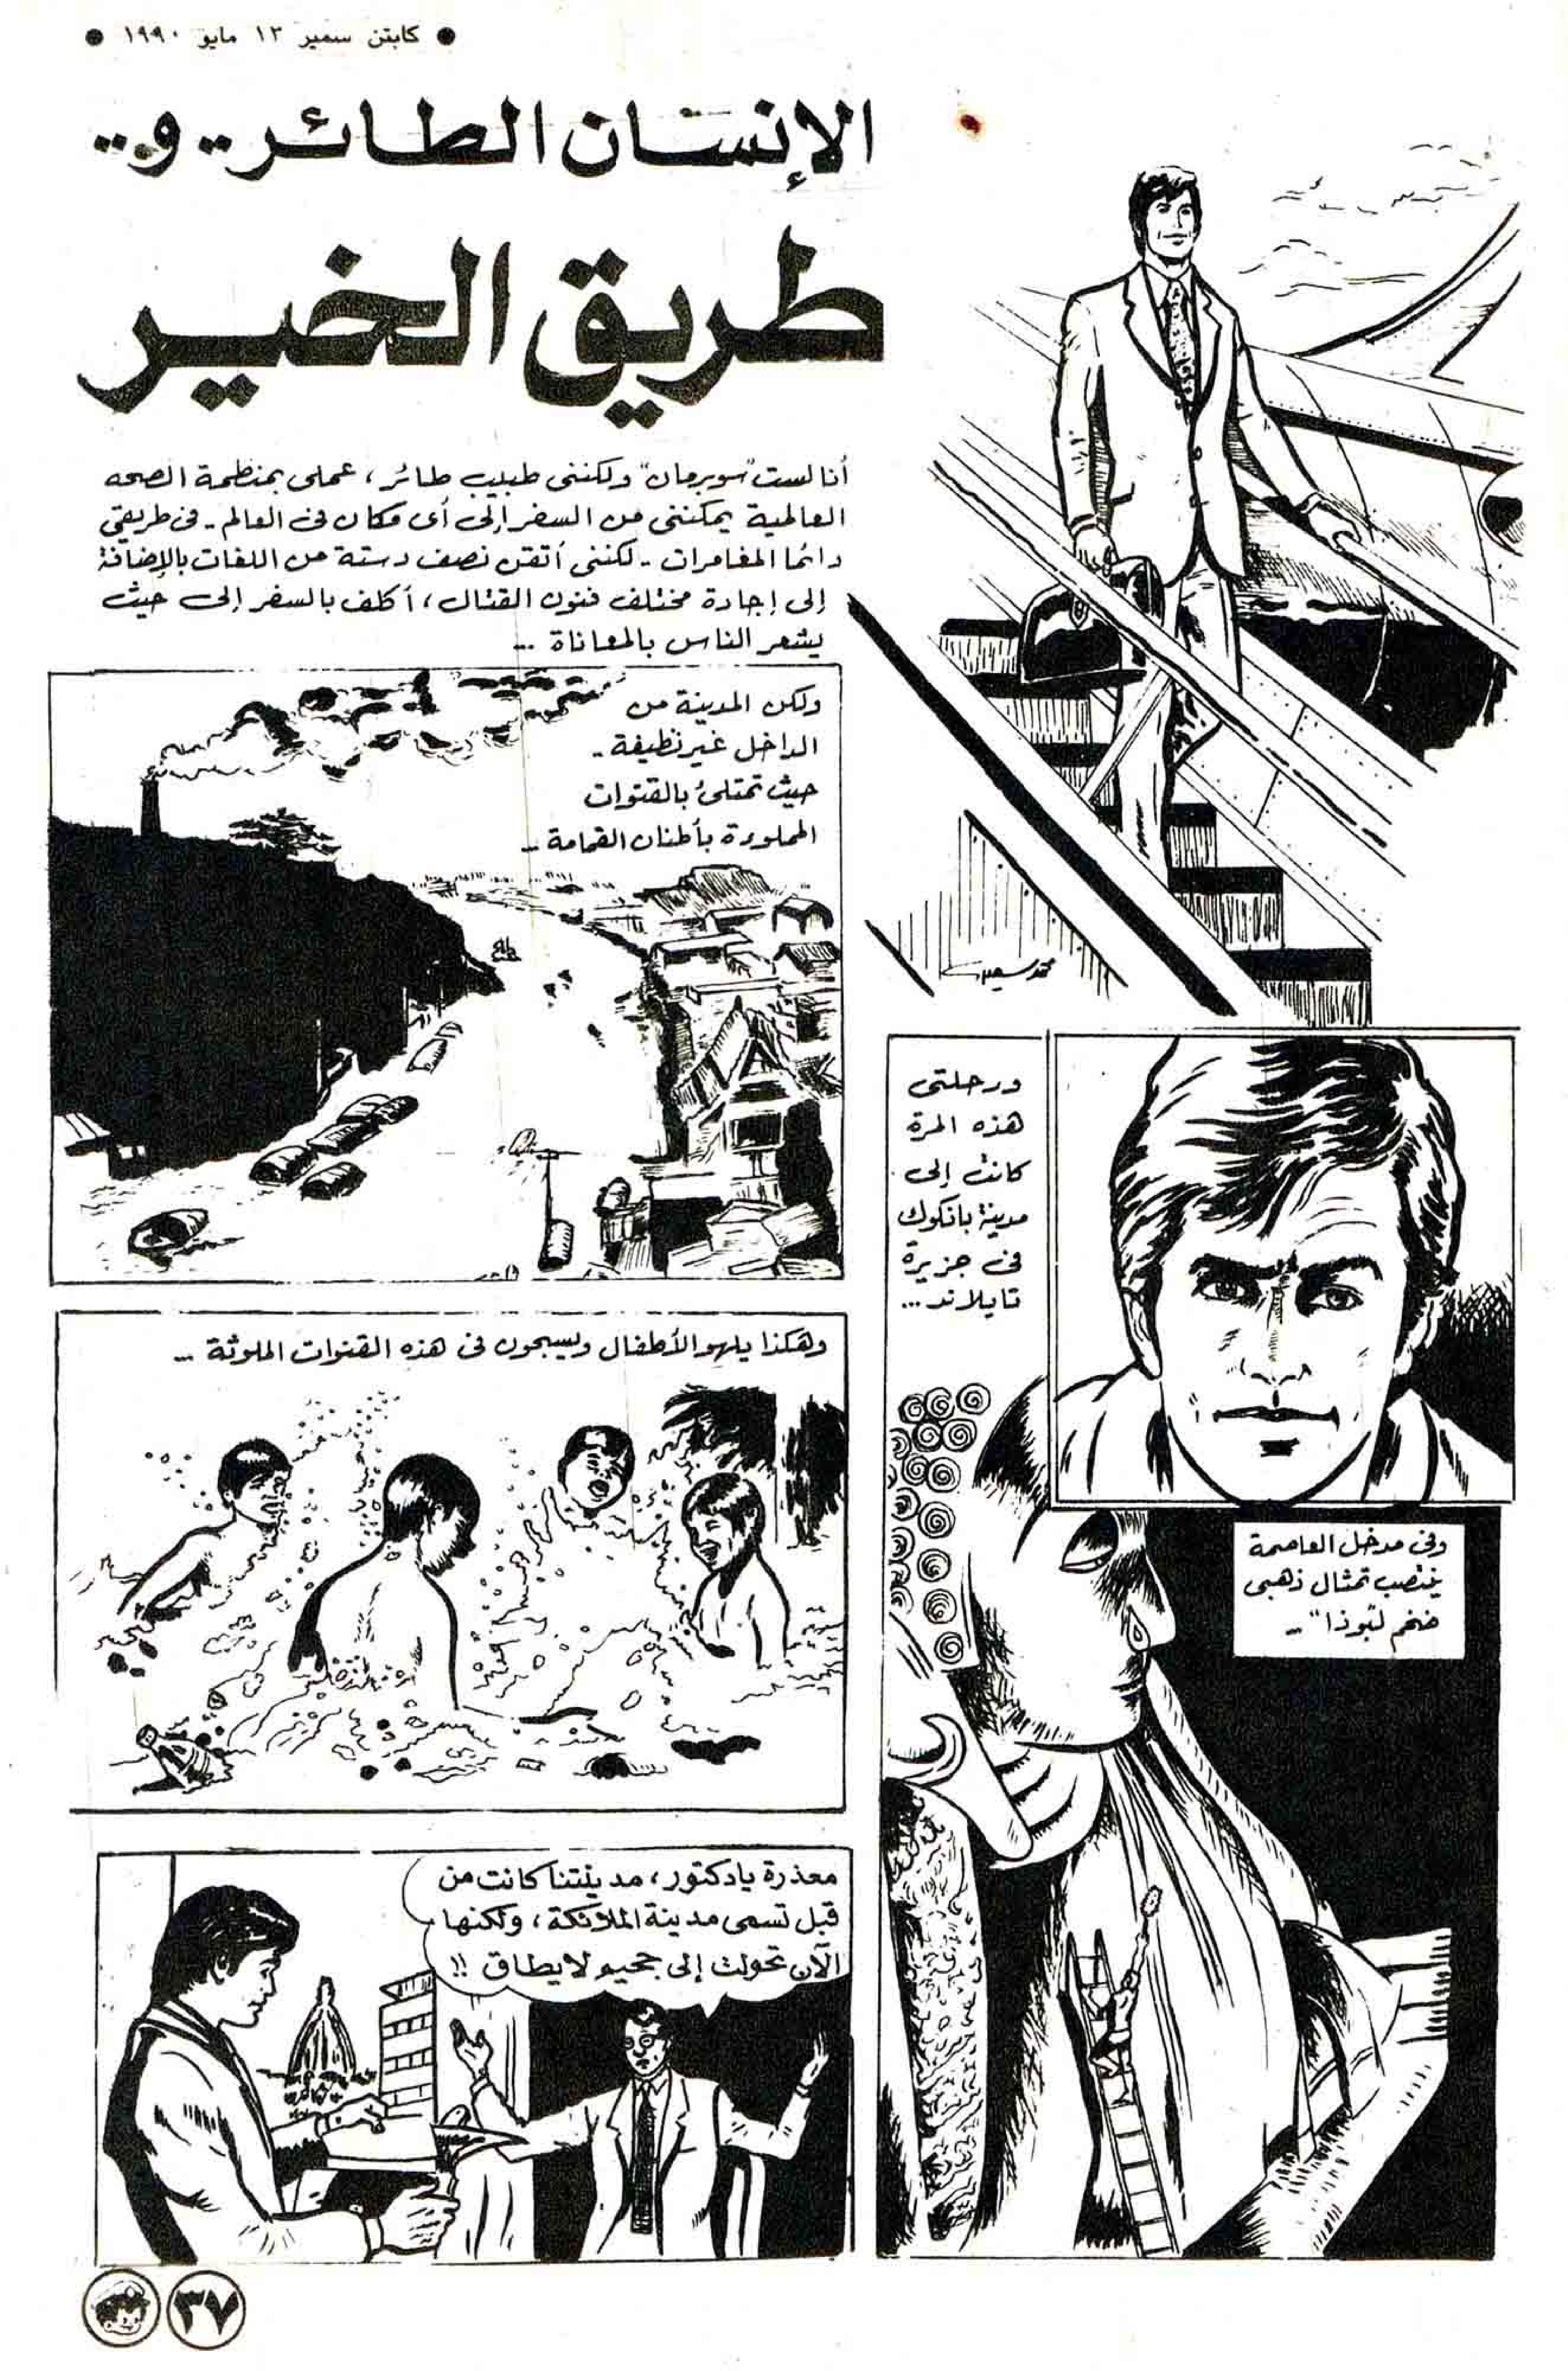 ● كابتن سمير ١٣ مايو ١٩٩٠ ●
الإنسان الطائر.. و..
طريق الخير
أنا لست "سوبرمان" ولكننى طبيب طائر، عملى بمنظمة الصحه
العالمية يمكننى من السفر إلى أى مكان فى العالم.. فى طريقى
دائما المغامرات.. لكننى أتقن نصف دستة من اللغات بالإضافة
إلى إجادة مختلف فنون القتال، أكلف بالسفر إلى حيث
يشعر الناس بالمعاناة ...
محمد سعيد
ورحلتى
هذه المرة
كانت إلى
مدينة بانكوك
فى جزيرة
تايلاند...
وفى مدخل العاصمة
ينتصب تمثال ذهبى
ضخم لـ"بوذا" ..
ولكن المدينة من
الداخل غير نظيفة ..
حيث تمتلئ بالقنوات
المملوءة بأطنان القمامة ..
وهكذا يلهو الأطفال ويسبحون فى هذه القنوات الملوثة ...
معذرة يادكتور، مدينتنا كانت من
قبل تسمى مدينة الملائكة، ولكنها
الآن تحولت إلى جحيم لايطاق !!
٣٧